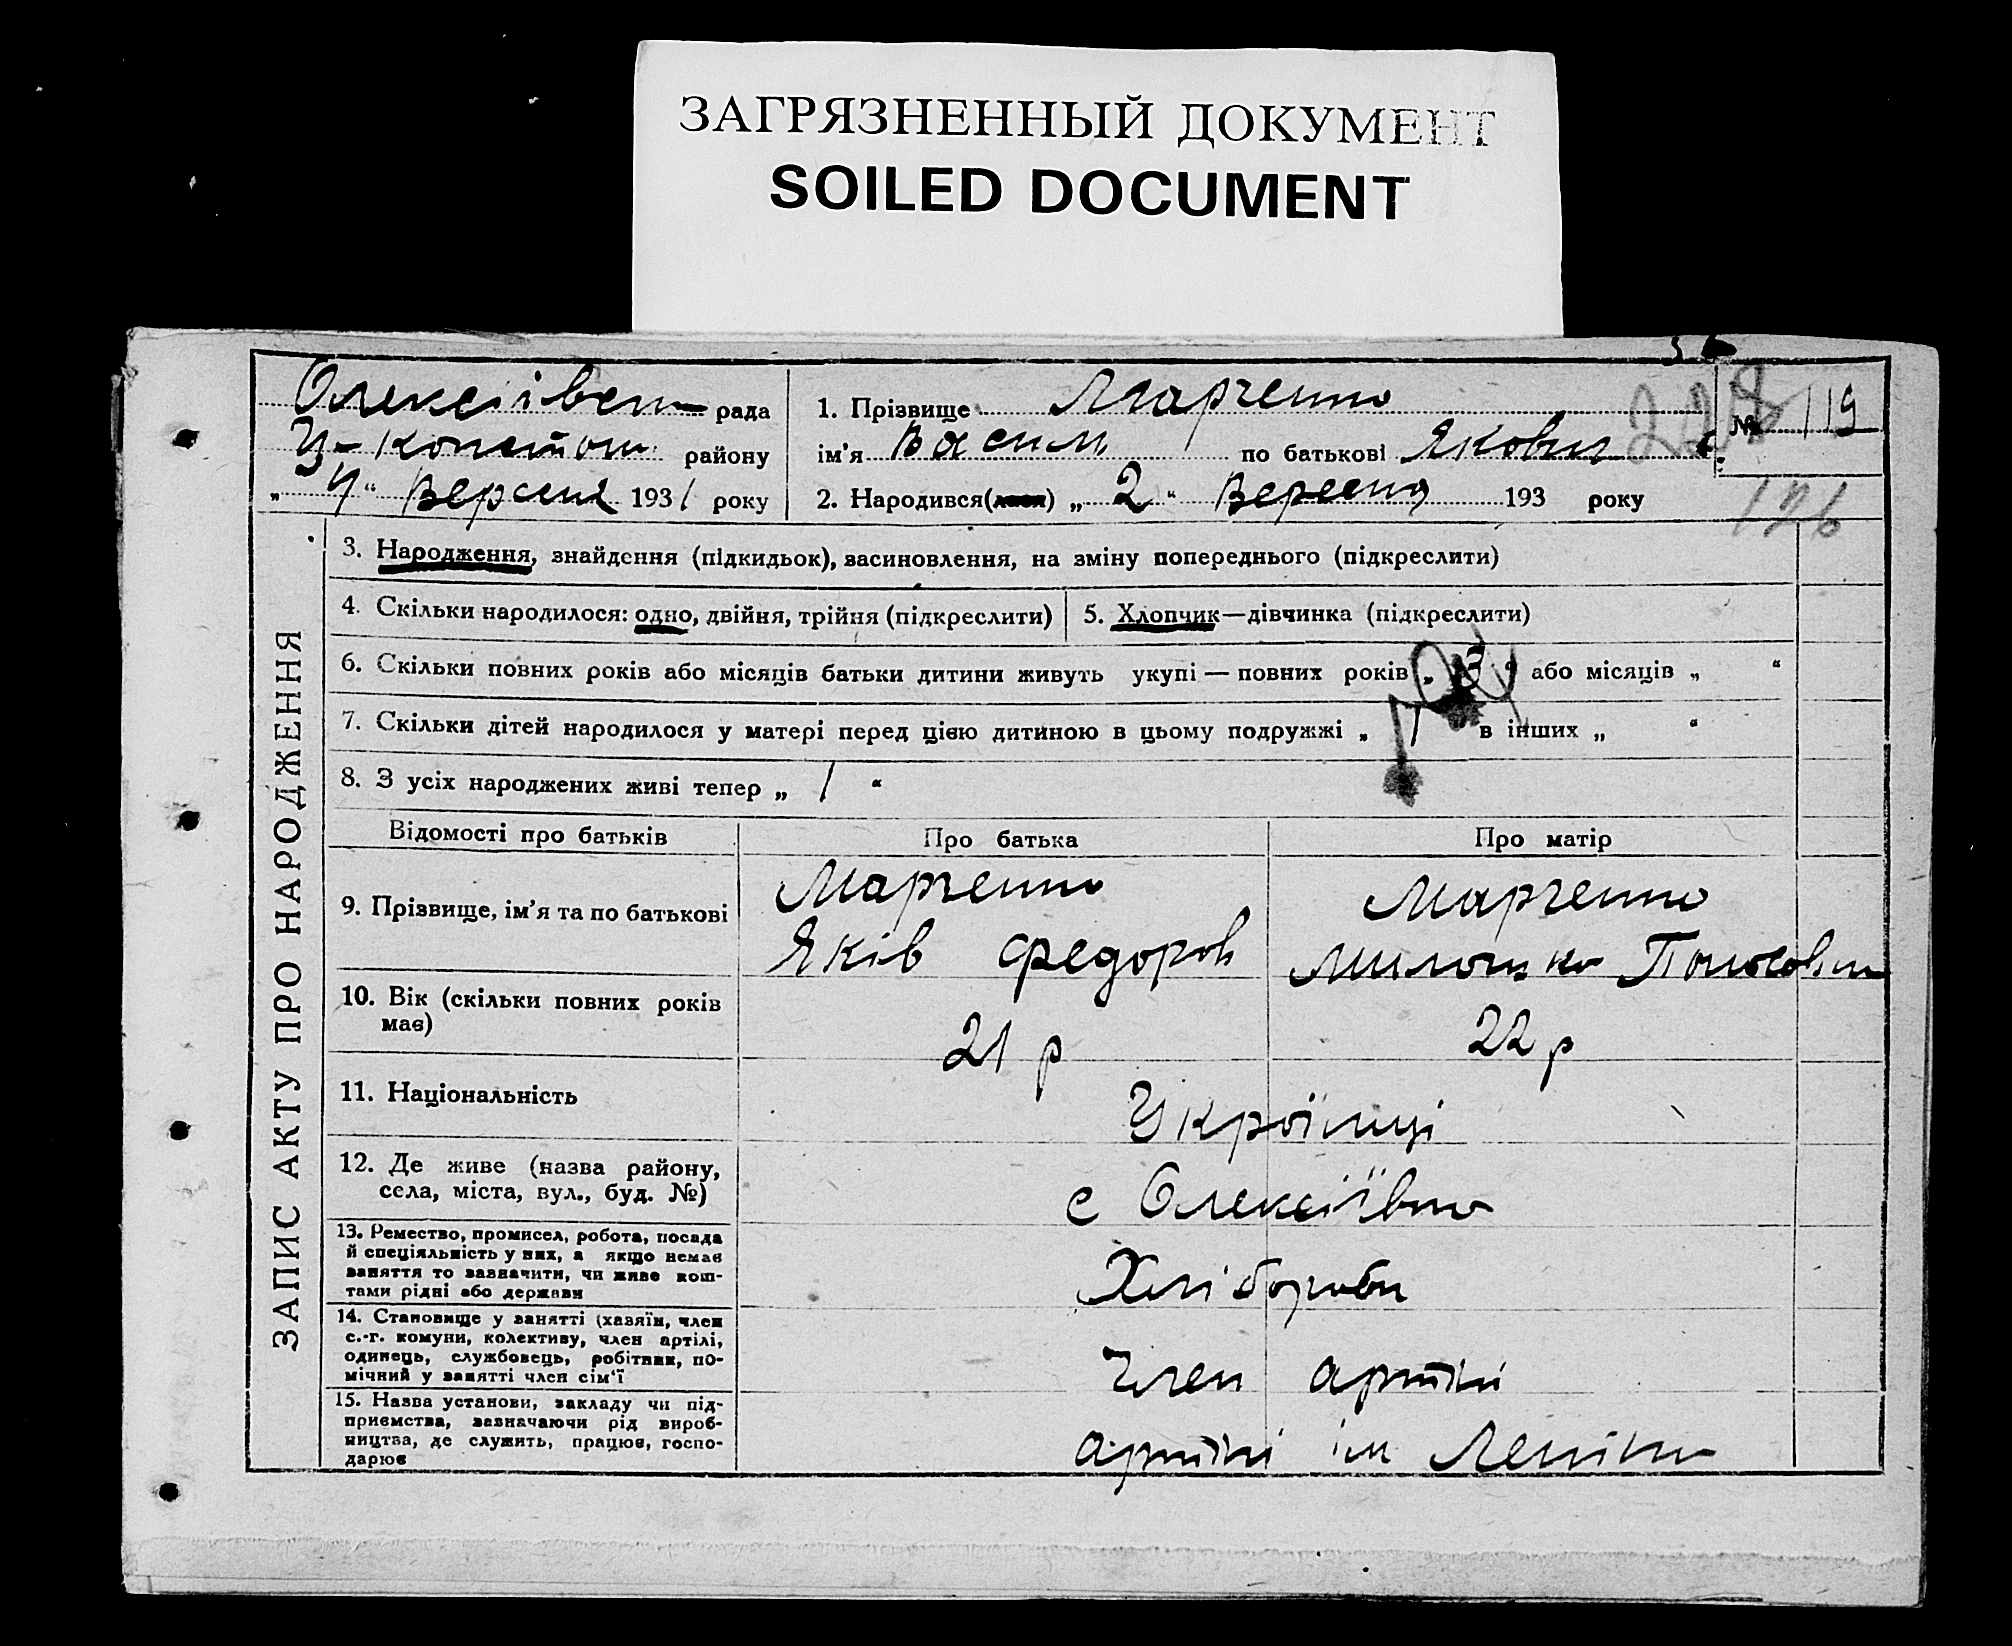 ЗАГРЯЗНЕННЫЙ ДОКУМЕНТ
SOILED DOCUMENT
Олексіївськ рада
району
„ 4 “ Вересня 1931 року
1. Прізвище Марченко
ім'я Василь по батькові Якович
2. Народився(лася) „ 2 “ Вересня 193 року
228
№ 119
126
ЗАПИС АКТУ ПРО НАРОДЖЕННЯ
3. Народження, знайдення (підкидьок), засиновлення, на зміну попереднього (підкреслити)
4. Скільки народилося: одно, двійня, трійня (підкреслити)
5. Хлопчик—дівчинка (підкреслити)
6. Скільки повних років або місяців батьки дитини живуть укупі — повних років „ 3 “ або місяців „ “
7. Скільки дітей народилося у матері перед цією дитиною в цьому подружжі „ 1 в інших „ “
8. З усіх народжених живі тепер „ 1 “
Відомості про батьків Про батька Про матір
9. Прізвище, ім'я та по батькові
Марченко
Яків Федоров
Марченко
10. Вік (скільки повних років
має)
21 р
22 р
11. Національність
Українці
12. Де живе (назва району,
села, міста, вул., буд. №)
с Олексіївка
13. Ремество, промисел, робота, посада
й спеціяльність у них, а якщо немає
заняття то зазначити, чи живе кош-
тами рідні або держави
Хлібороби
14. Становище у занятті (хазяїн, член
с.-г. комуни, колективу, член артілі,
одинець, службовець, робітник, по-
мічний у занятті член сім'ї
Член артілі
15. Назва установи, закладу чи під-
приємства, зазначаючи рід вироб-
ництва, де служить, працює, госпо-
дарює
артілі ім Леніна